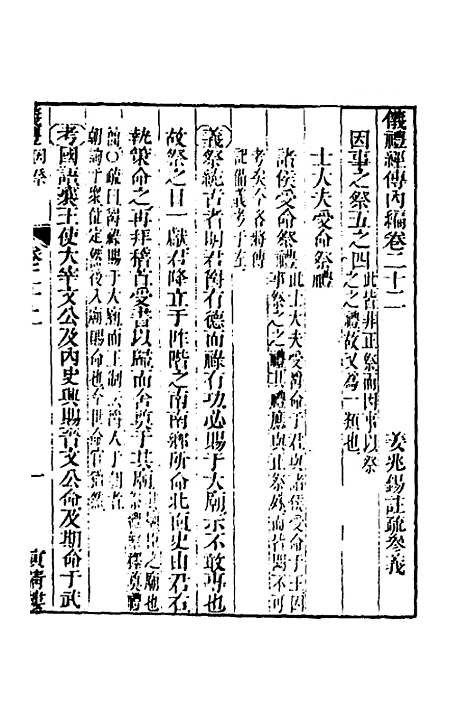 儀禮經傳內編卷二十二　姜兆錫註疏參義
因事之祭五之四此皆非正祭而因事以祭之之禮故又為一類也
士大夫受命祭禮
諸侯受命祭禮此士大夫受爵命于君與諸侯受命于王因事祭之禮其禮應與正祭殊而皆闕不可
考矣今各將傳
記備義考于左
義祭統古者明君爵有德而祿有功必賜于大廟示不敢專也
故祭之日一獻君降立于阼階之南南鄉所命北面史由君右
執策命之再拜稽首受書以歸而舍奠于其廟
疏曰爵祿賜于大廟而王制爵人于朝者
朝詢于衆位定然後入廟命也
考國語襄王使大宰文公及內史興賜晉文公命及期命于武
儀禮內祭　卷二十二　一　寅清樓